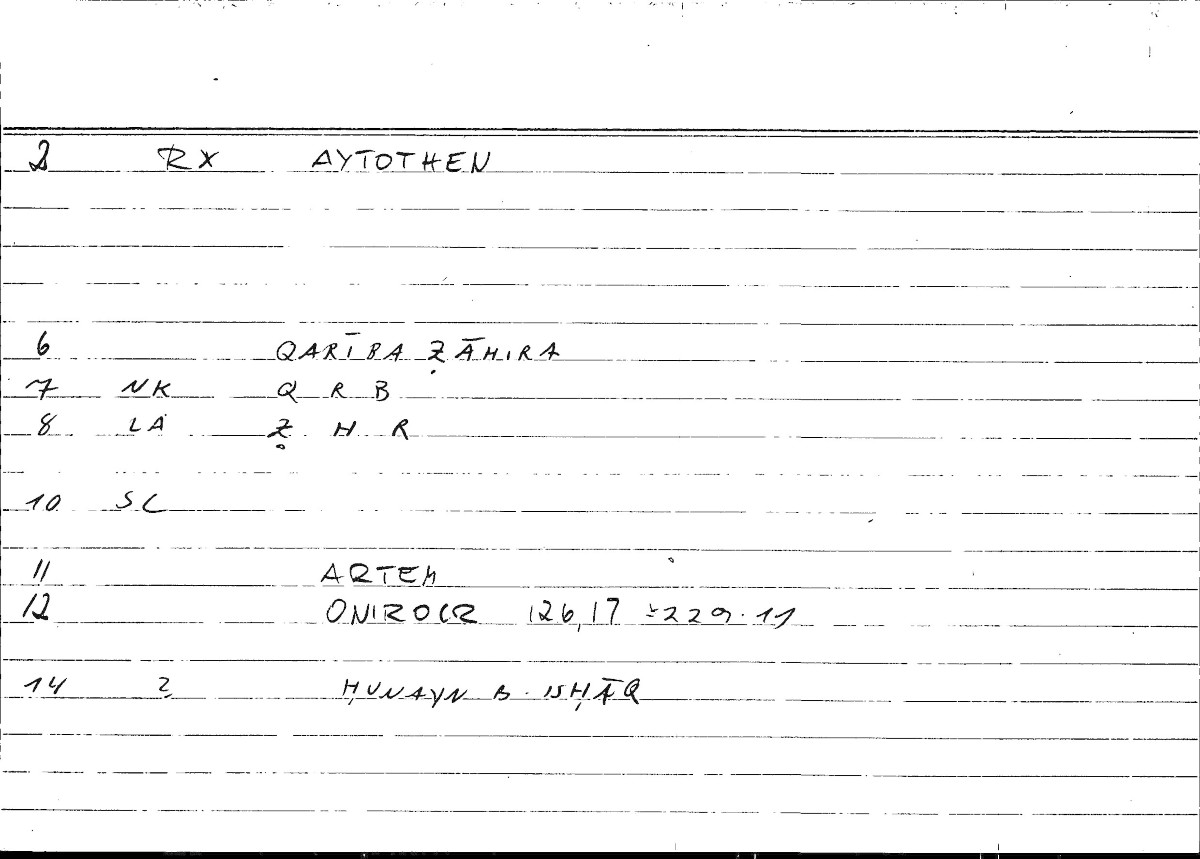 2 RX AYTOTHEN
6 QARĪBA ẒĀHIRA
7 NK Q R B
8 LA Ẓ H R
10 SC
11 ARTEM
12 ONIROCR 126,17 = 229.11
14 2 ḤUNAYN B. ISḤĀQ